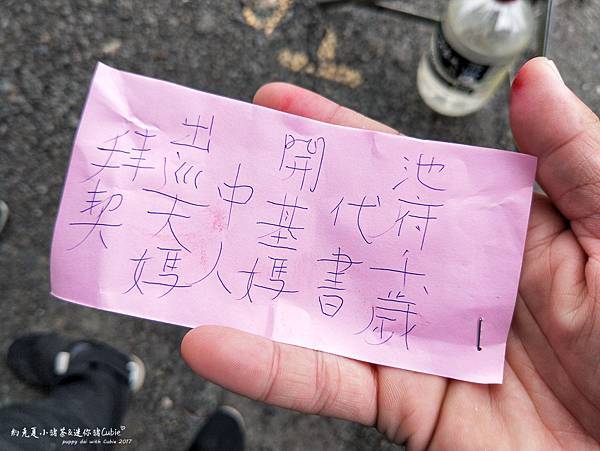 池府千歲
代書
開基媽
中人
出巡天媽
拜契
約克夏小豬茶&迷你豬Cubie
puppy dai with Cubie 2017